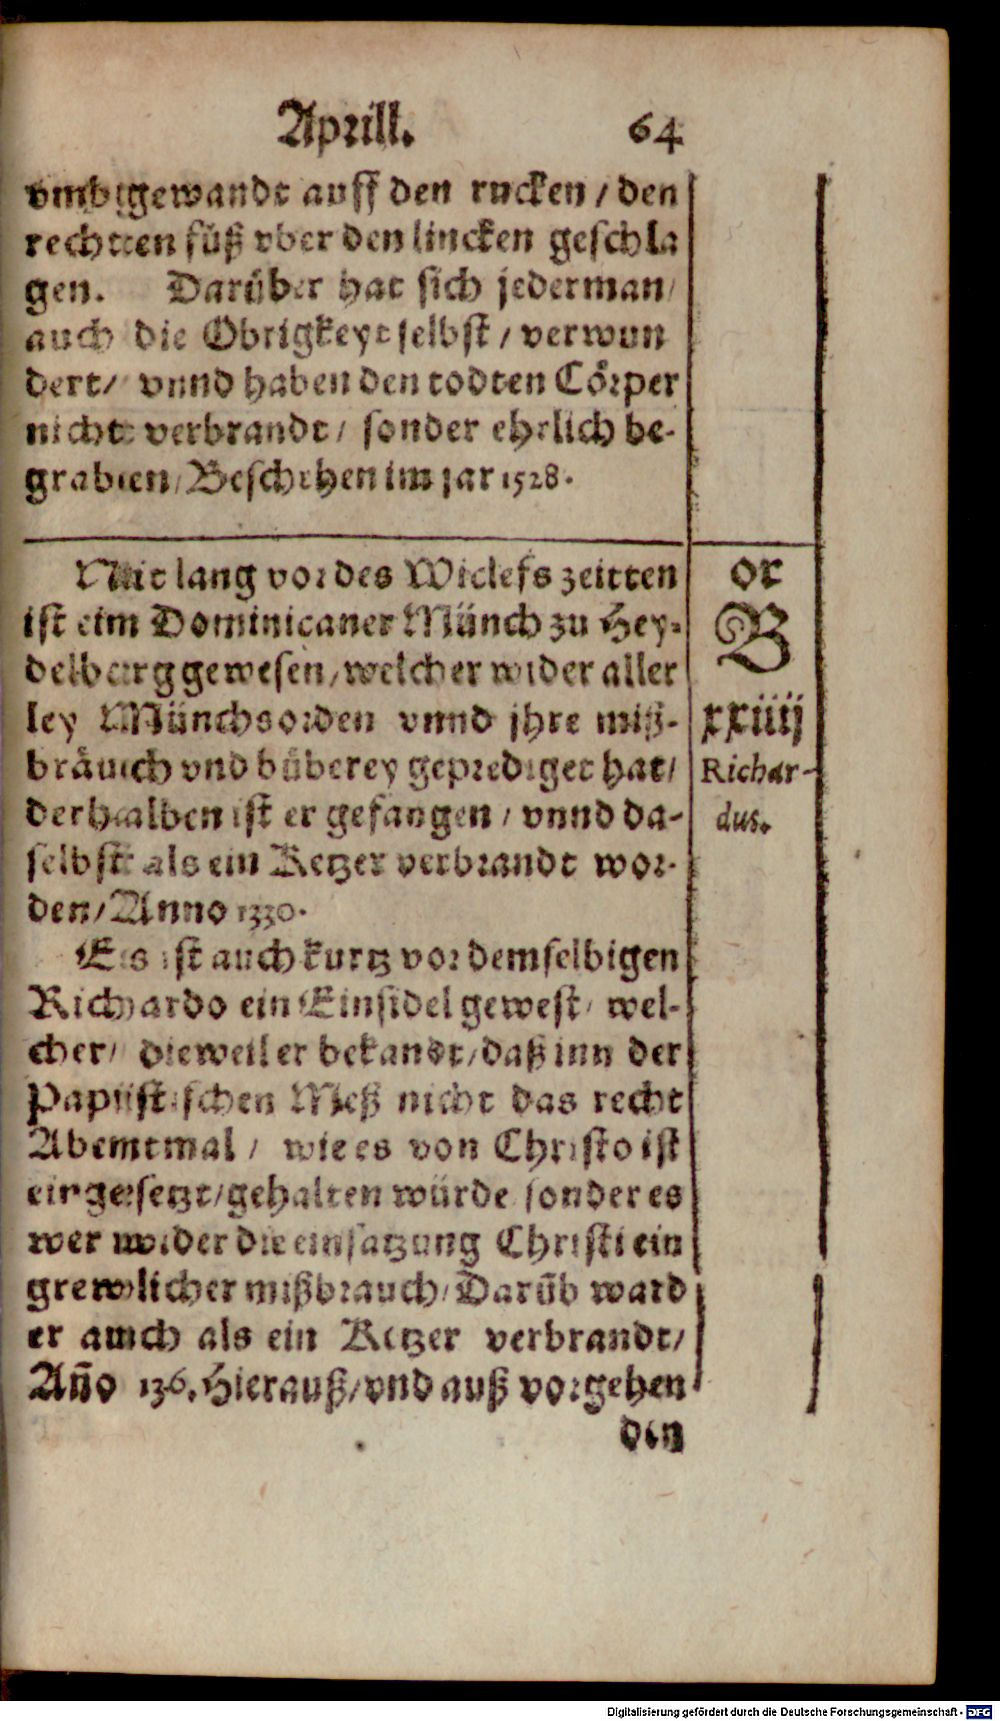 Aprill. 64
vmbgewandt auff den rucken / den
rechtten füß vber den lincken geschla
gen. Darüber hat sich jederman /
auch die Obrigkeyt selbst / verwun
dert / vnnd haben den todten Cörper
nicht verbrandt / sonder ehrlich be-
graben / Beschehen im jar 1528.
Nit lang vor des Wiclefs zeitten
ist eim Dominicaner Münch zu Hey-
delberg gewesen / welcher wider aller
ley Münchsorden vnnd jhre miß-
bräuch vnd büberey geprediget hat /
derhalben ist er gefangen / vnnd da-
selbst als ein Ketzer verbrandt wor-
den / Anno 1330.
Es ist auch kurtz vor demselbigen
Richardo ein Einsidel gewest / wel-
cher / dieweil er bekandt / daß inn der
Papistischen Meß nicht das recht
Abentmal / wie es von Christo ist
eingesetzt / gehalten würde sonder es
wer wider die einsatzung Christi ein
grewlicher mißbrauch / Darüb ward
er auch als ein Ketzer verbrandt /
Año 136. Hierauß / vnd auß vorgehen
den
or
B
xxiiij
Richar-
dus.
Digitalisierung gefördert durch die Deutsche Forschungsgemeinschaft - DFG